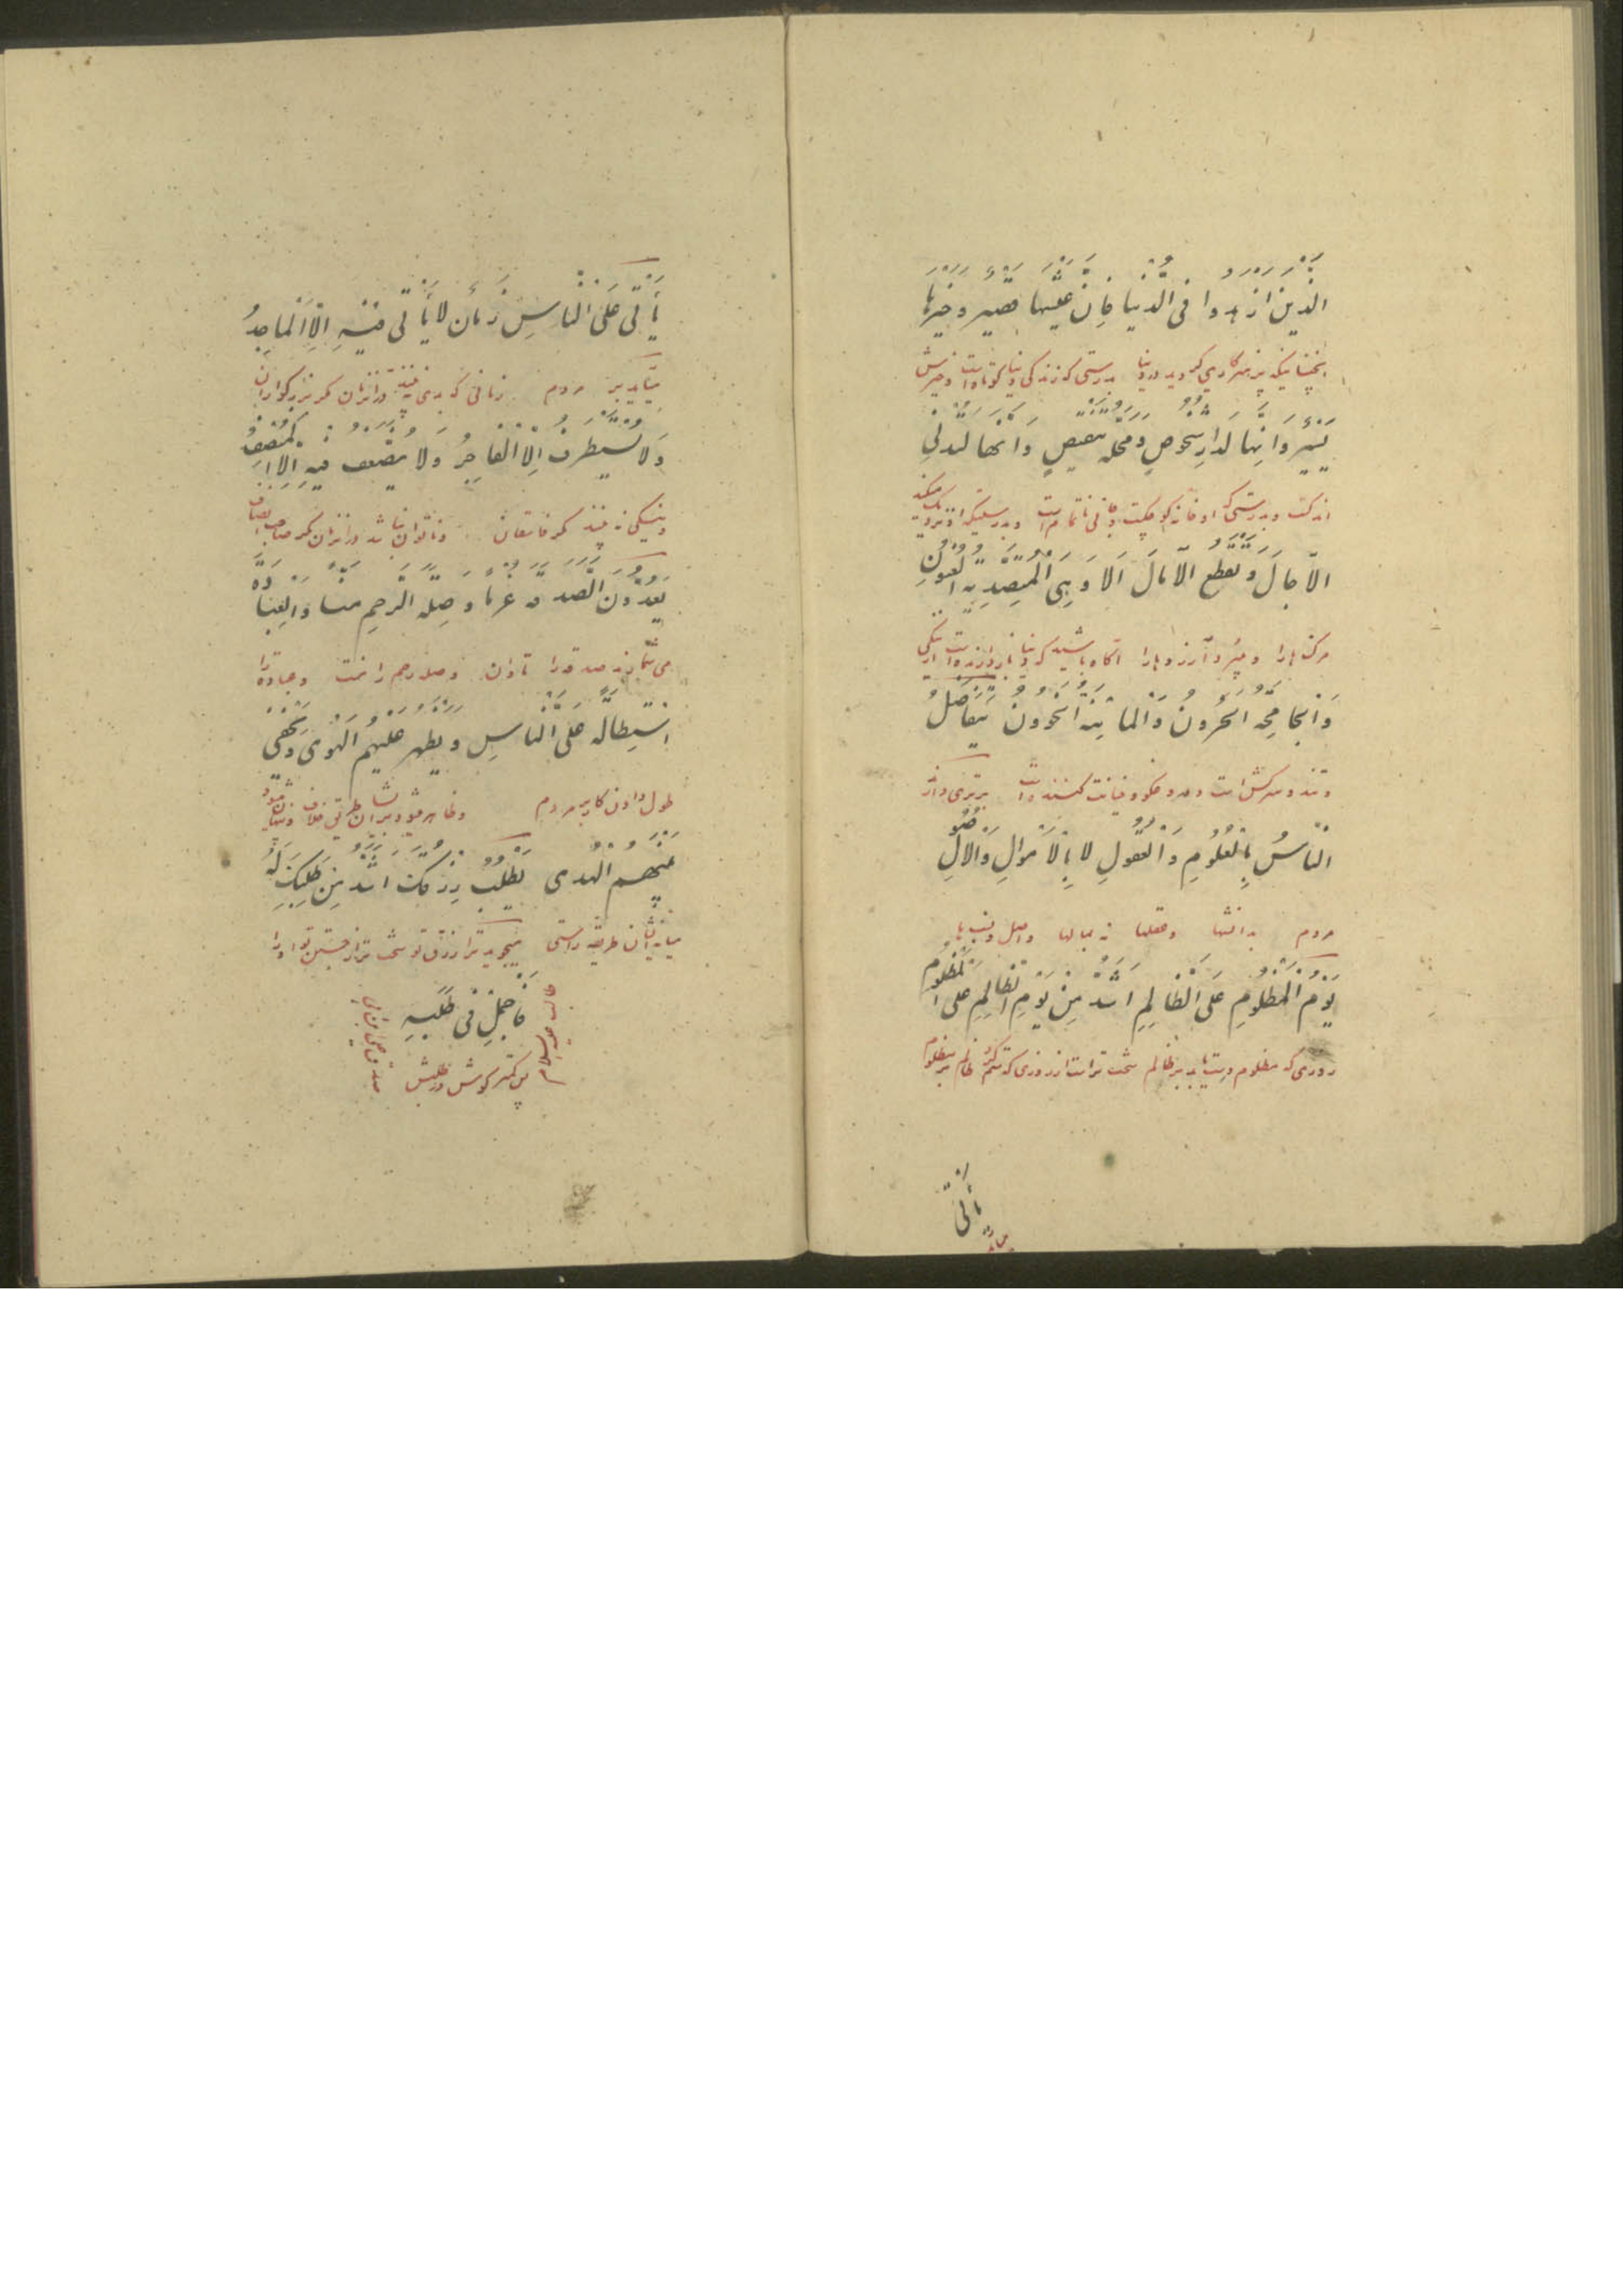 الَّذین ازهدوا فی الدُّنیا فَاِنَّ عَیْشَها قَصیرٌ وَ خَیْرَها
پرهیزکاری کردید در دنیا بدرستی که زندگی دنیا کوتاه است و خیرش
یَسیرٌ وَ اِنَّها لَدارُ شُخُوصٍ وَ مَحَلَّه تَنغیصٍ وَ اِنَّها لَتُدنِی
اندکست و بدرستی که او خانه کوچکست
الآجالَ وَ تَقطَعُ الآمالَ اَلا وَ هِیَ المُتَصَدِّیَه العَنُونُ
مرکها را و میبرد آرزوها را آگاه باشید که دنیا
وَ الجامِحَه الحَرُونُ وَ المانِیَه الخَؤون یَتَفاضَلُ
و تند و سرکش است و دروغکو و خیانت کننده است برتری دارند
النّاسُ بِالعُلُومِ وَ العُقُولِ لا بِالاَموالِ وَ الاُصُولِ
مردم بدانشها و عقلها نه بمالها و اصل و نسبها
یَوْمُ المَظْلُومِ عَلَی الظّالِمِ اَشَدُّ مِنْ یَوْمِ الظّالِمِ عَلَی المَظْلُومِ
روزی که مظلوم دست یابد بر ظالم سخت تر است از روزی که ستم کند ظالم بر مظلوم
یأتی
یَأْتی عَلَی النّاسِ زَمانٌ لا یَأْتی فیهِ اِلاّ الماجِدُ
میآید بر مردم زمانی که در آنزمان مکر بزرکواران
وَ لا یُسْتَظْرَفُ اِلاّ الفاجِرُ وَ لا یُضَعَّفُ فیهِ اِلاّ المُنْصِفُ
مکر فاسقان و ناتوان نباشد در آنزمان مکر صاحب انصاف
یَعُدُّونَ الصَّدَقَه غُرما وَ صِلَه الرَّحِمِ مَنّا وَ العِبادَهَ
می شمارند صدقه را تاوان و صله رحم را منت و عبادة را
اسْتِطالَه عَلَی النّاسِ وَ یَظْهَر عَلَیْهِمُ الْهَوی وَ یَخْفی
طول دادن کار بر مردم و ظاهر میشود بر ایشان طریق خلاف و پنهان میشود
عَنْهُمُ الْهُدی یَطْلُبُکَ رِزْقُکَ اَشَدَّ مِنْ طَلَبِکَ لَهُ
میانه ایشان طریقه راستی میجوید ترا رزق تو سخت تر از جستن تو او را
فَاَجْمِلْ فِی طَلَبِهِ
پس کمتر کوش در طلبش